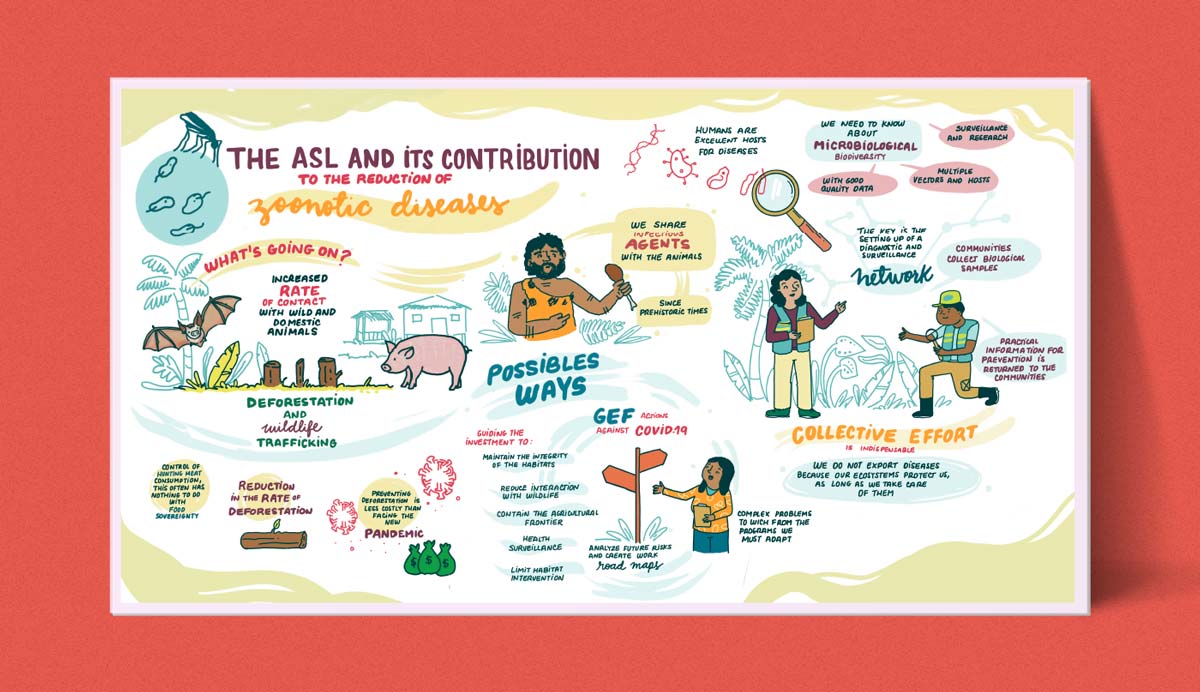 THE ASL AND ITS CONTRIBUTION
TO THE REDUCTION OF
zoonotic diseases
WHAT'S GOING ON?
INCREASED
RATE
OF CONTACT
WITH WILD AND
DOMESTIC
ANIMALS
DEFORESTATION
AND
wildlife
TRAFFICKING
CONTROL OF
HUNTING MEAT
CONSUMPTION,
THIS OFTEN HAS
NOTHING TO DO
WITH
FOOD
SOVEREIGNTY
REDUCTION
IN THE RATE OF
DEFORESTATION
PREVENTING
DEFORESTATION IS
LESS COSTLY THAN
FACING THE
NEW
PANDEMIC
$ $ $
WE SHARE
INFECTIOUS
AGENTS
WITH THE ANIMALS
SINCE
PREHISTORIC TIMES
POSSIBLES
WAYS
GEF ACTIONS
AGAINST COVID-19
GUIDING THE
INVESTMENT TO:
MAINTAIN THE INTEGRITY
OF THE HABITATS
REDUCE INTERACTION
WITH WILDLIFE
CONTAIN THE AGRICULTURAL
FRONTIER
HEALTH
SURVEILLANCE
LIMIT HABITAT
INTERVENTION
ANALYZE FUTURE RISKS
AND CREATE WORK
road maps
COMPLEX PROBLEMS
TO WICH FROM THE
PROGRAMS WE
MUST ADAPT
HUMANS ARE
EXCELENT HOSTS
FOR DISEASES
WE NEED TO KNOW
ABOUT
MICROBIOLOGICAL
BIODIVERSITY
SURVEILLANCE
AND RESEARCH
MULTIPLE
VECTORS AND HOSTS
WITH GOOD
QUALITY DATA
THE KEY IS THE
SETTING UP OF A
DIAGNOSTIC AND
SURVEILLANCE
network
COMMUNITIES
COLLECT BIOLOGICAL
SAMPLES
PRACTICAL
INFORMATION FOR
PREVENTION IS
RETURNED TO THE
COMMUNITIES
COLLECTIVE EFFORT
IS INDISPENSABLE
WE DO NOT EXPORT DISEASES
BECAUSE OUR ECOSYSTEMS PROTECT US,
AS LONG AS WE TAKE CARE
OF THEM